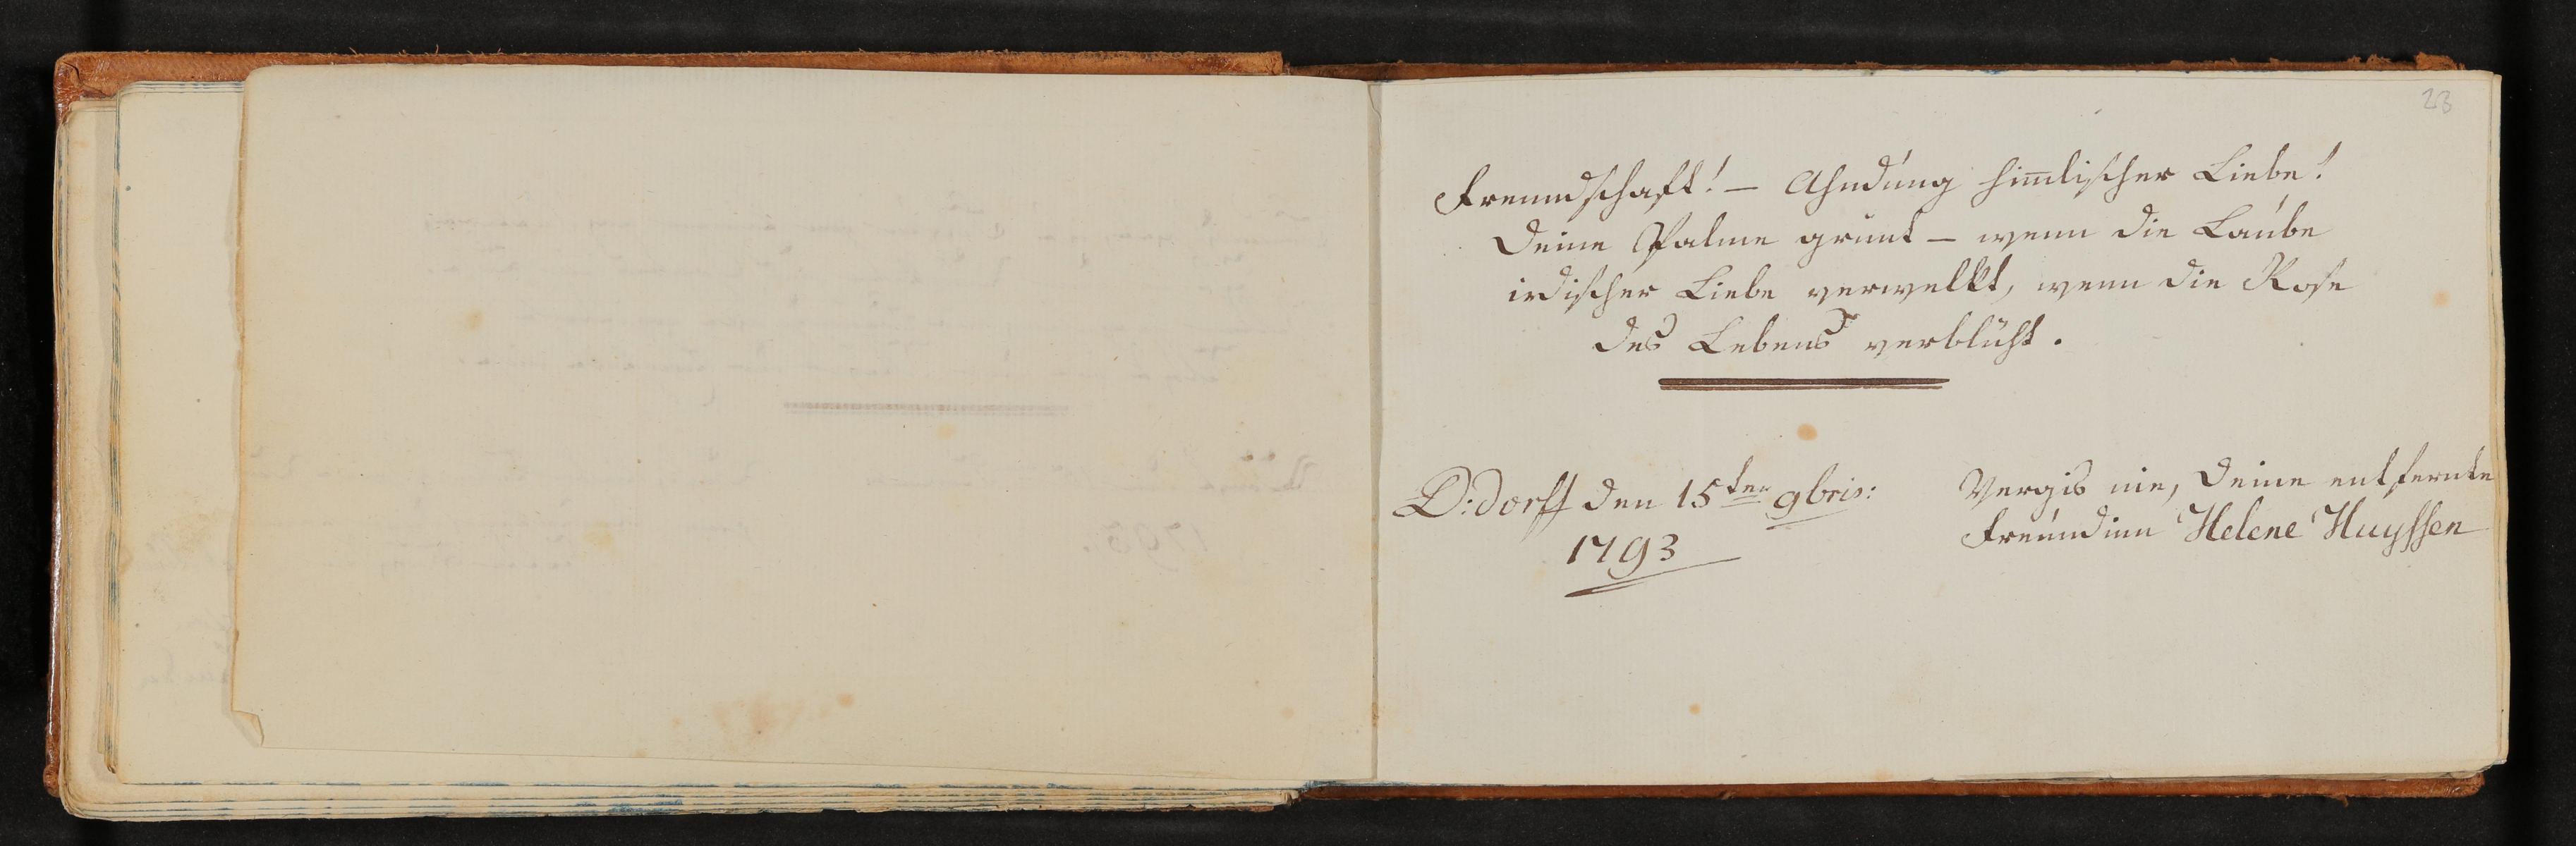 28
Freundschaft! – Ahndung himlischer Liebe!
Deine Palme grünt – wenn die Laube
irdischer Liebe verwelkt, wenn die Rose
des Lebens verblüht.
D:dorff den 15ten 9bris:
1793
Vergis nie, Deine entfernte
Freundinn Helene Huyssen